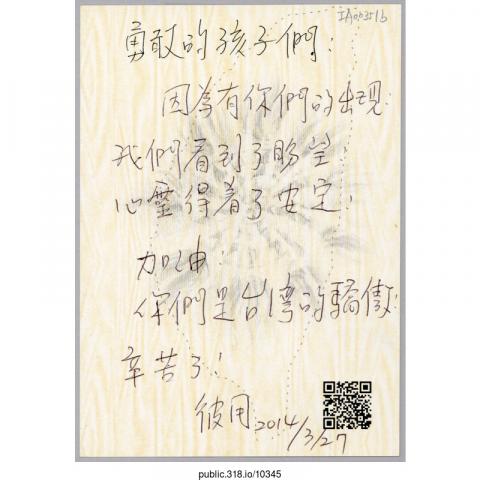 IA00351b
勇敢的孩子們：
因為有你們的出現
我們看到了盼望
心靈得着了安定．
加油．
你們是台灣的驕傲．
辛苦了！
彼用 2014/3/27
public.318.io/10345